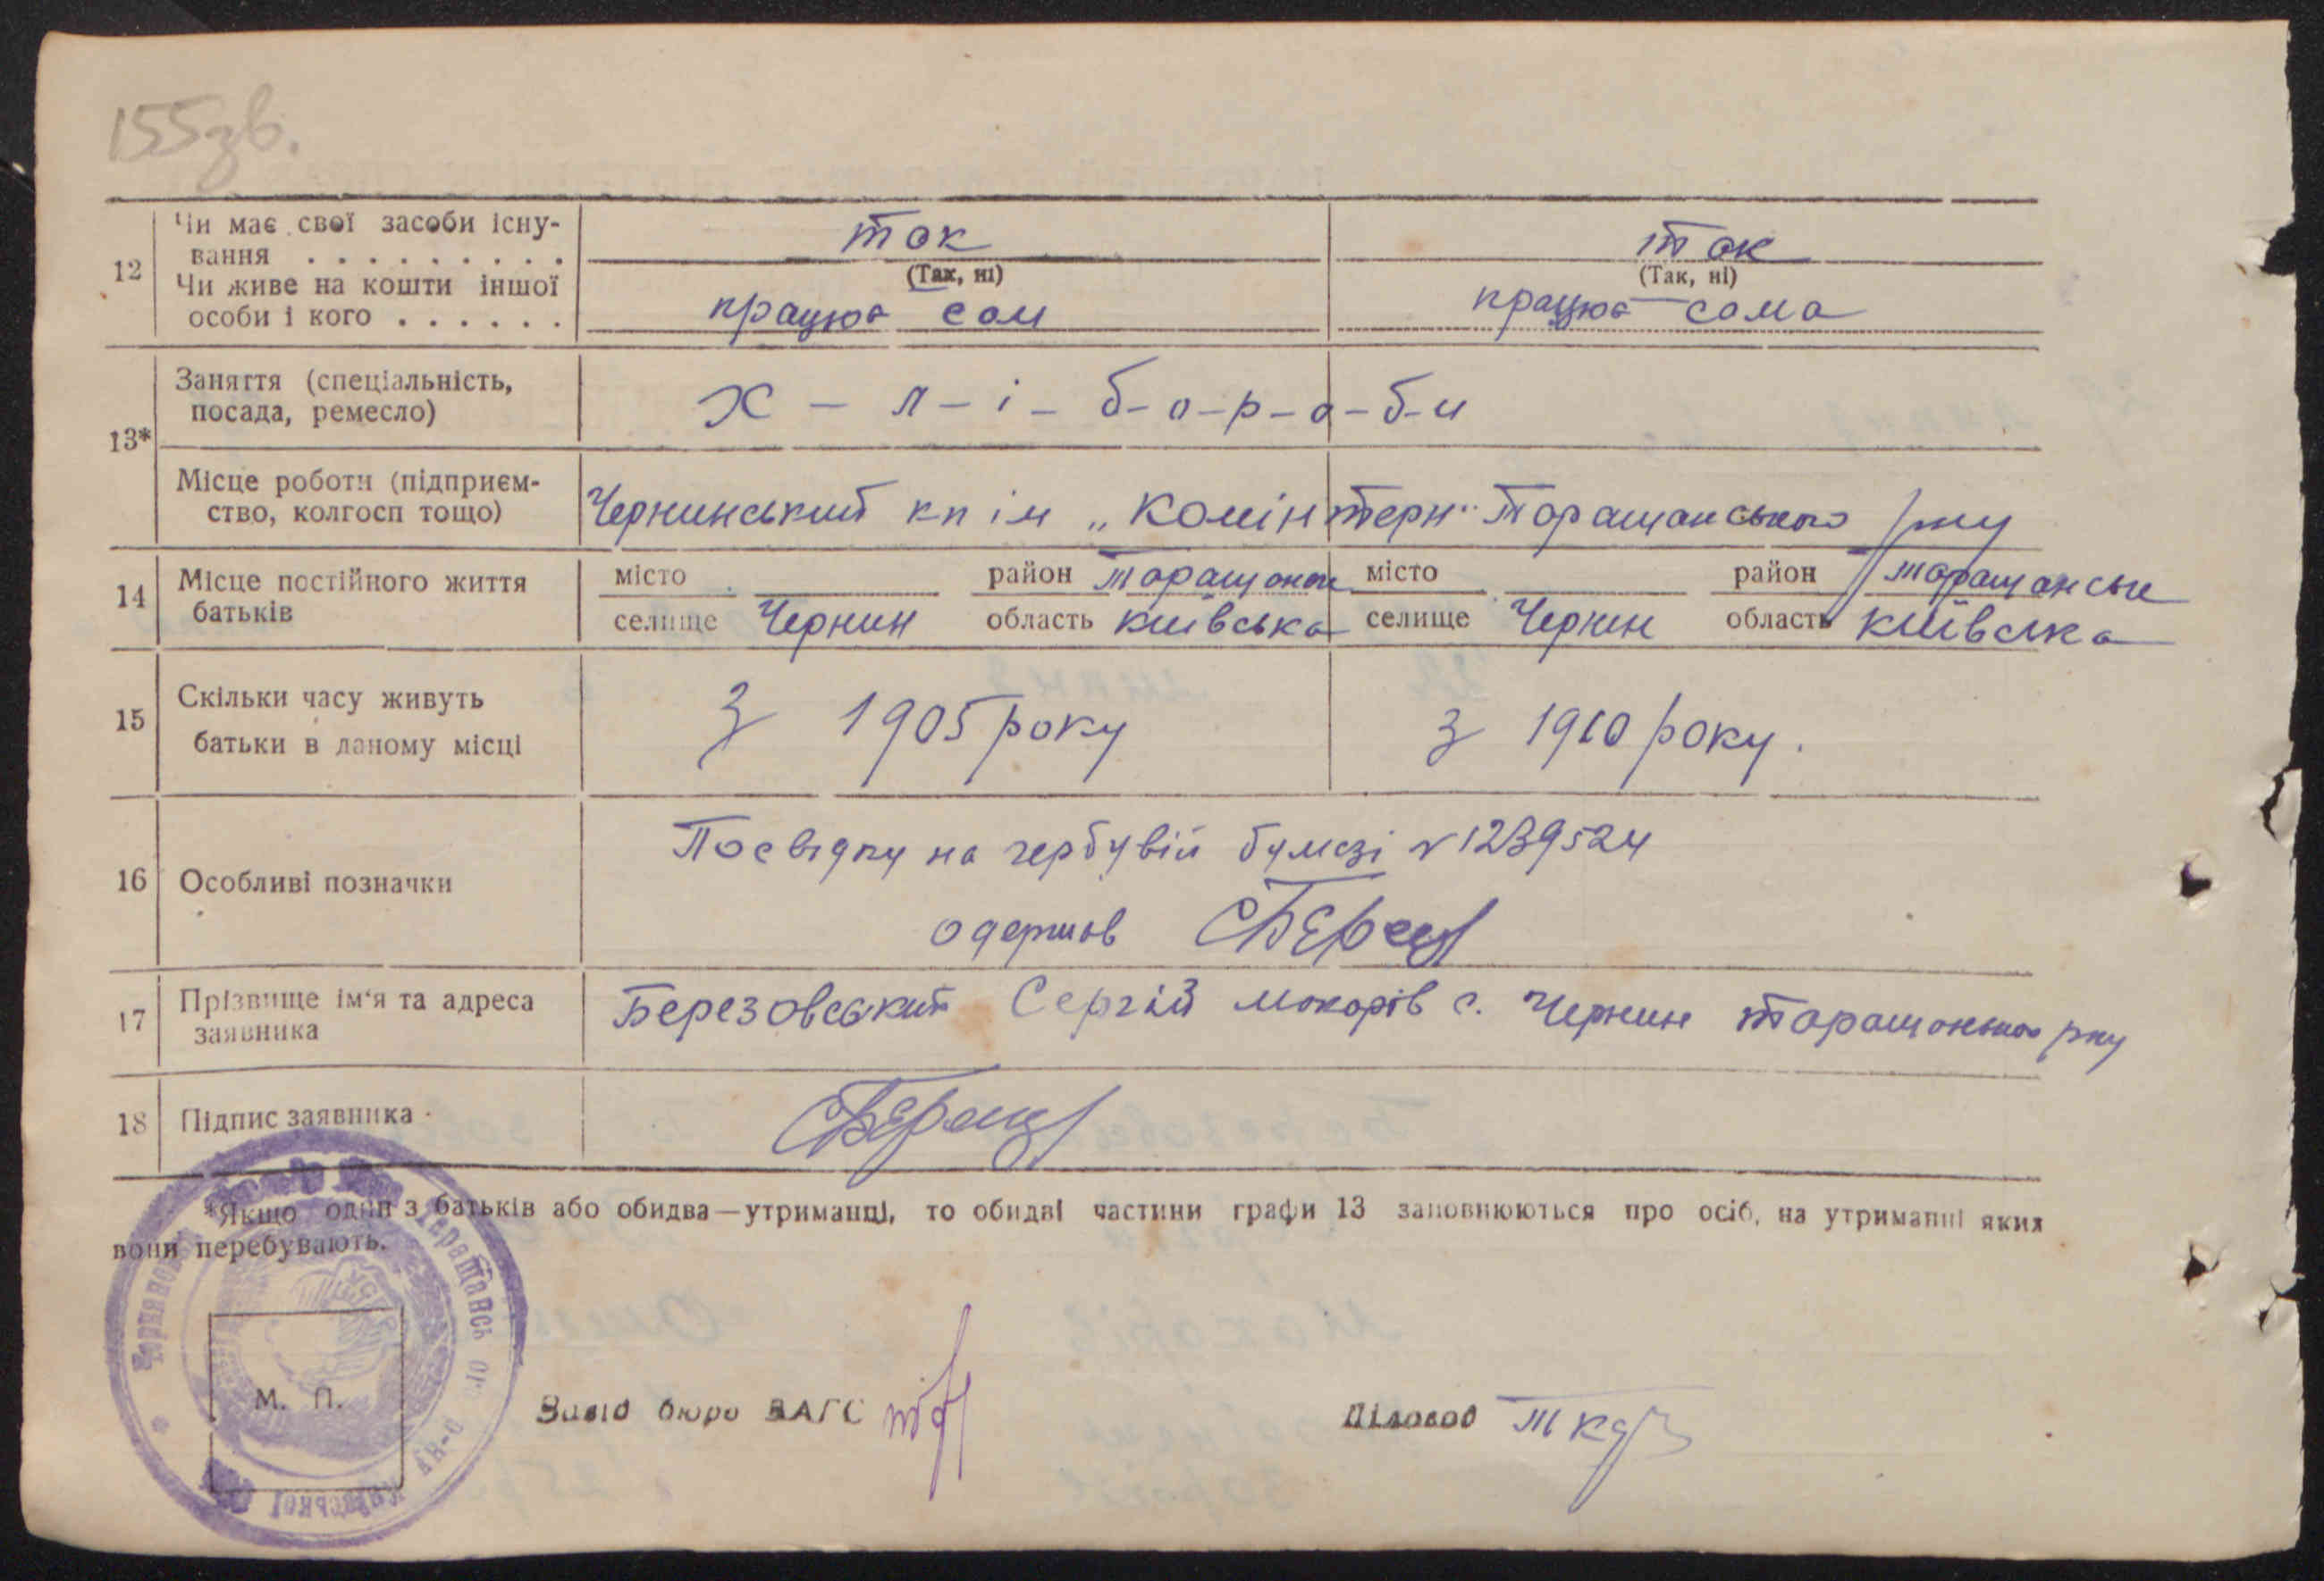 155зв.
12
Чи має свої засоби існу-
вання . . . . . . . . . . так так
(Так, ні) (Так, ні)
Чи живе на кошти іншої
особи і кого . . . . . . працює сам працює сама
13*
Заняття (специальність,
посада, ремесло) Х - л - і - б - о - р - о - б - и
Місце роботи (підприєм-
ство, колгосп тощо) Чернинський кп ім „Комінтерн" Таращанського р-ну
14
Місце постійного життя
батьків
місто район Таращанськ місто район Таращанськ
селище Чернин область Київська селище Чернин область Київська
15
Скільки часу живуть
батьки в даному місці
З 1905 року з 1910 року.
16 Особливі позначки
Посвідку на гербувій бумазі № 1239524
одержав
17
Прізвище ім'я та адреса
заявника
Березовський Сергій Макарів с. Чернин Таращанського р-ну
18 Підпис заявника
*Якщо один з батьків або обидва—утриманці, то обидві частини графи 13 заповнюються про осіб, на утриманні яких
вони перебувають.
М. П.
Завід бюро ЗАГС
Діловод